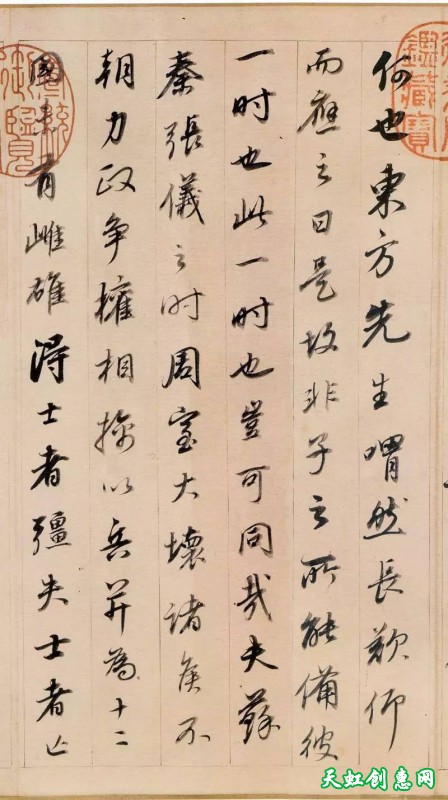 何也東方先生喟然長歎仰
而應之曰是故非子之所能備彼
一时也此一时也豈可同哉夫蘇
秦張儀之时周室大壞諸侯不
朝力政争權相擒以兵并為十二
國未有雌雄得士者彊失士者亡
鑑藏寶
宣統御覽
天虹创惠网